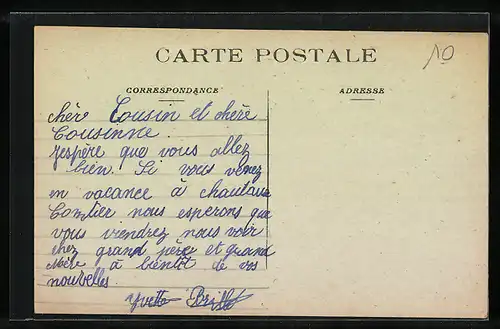 CARTE POSTALE
10
CORRESPONDANCE
ADRESSE
chère Cousin et chère
Cousinne.
J'espère que vous allez
bien. Si vous venez
en vacance à
nous esperons que
vous viendrez nous voir
chez grand père et grand
Mère à bientôt de vos
nouvelles
Yvette